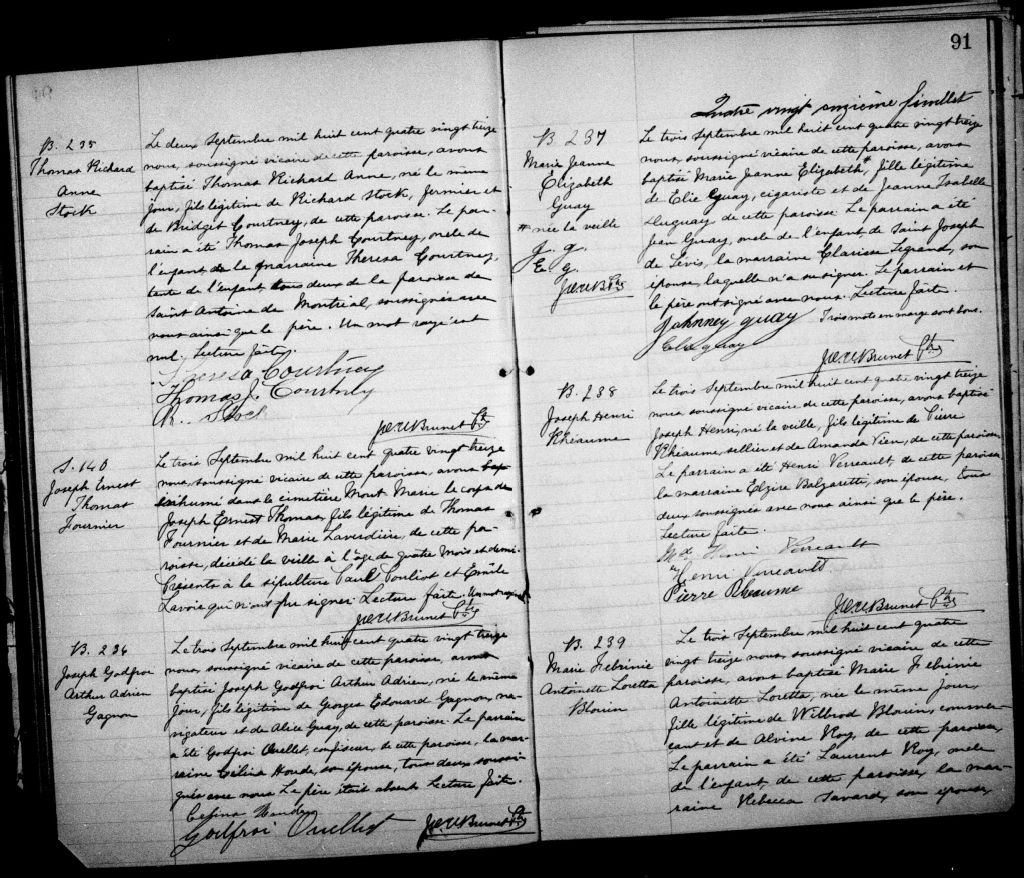 B. 235
Thomas Richard
Anne
Stock
Le deux Septembre mil huit cent quatre vingt treize
nous, soussigné vicaire de cette paroisse, avons
baptisé Thomas Richard Anne, né le même
jour, fils légitime de Richard Stock, fermier et
de Bridget Courtney, de cette paroisse. Le par-
rain a été Thomas Joseph Courtney, oncle de
l'enfant de la marraine Theresa Courtney,
tante de l'enfant tous deux de la paroisse de
Saint Antoine de Montréal, soussignés avec
nous ainsi que le père. Un mot rayé est
nul. Lecture faite.
Theresa Courtney
Thomas J. Courtney
R. Stock
J. E. U. Brunet Ptre
S. 140
Joseph Ernest
Thomas
Fournier
Le trois Septembre mil huit cent quatre vingt treize
nous, soussigné vicaire de cette paroisse, avons
inhumé dans le cimetière Mont Marie le corps de
Joseph Ernest Thomas, fils légitime de Thomas
Fournier et de Marie Laverdière, de cette pa-
roisse, décédé la veille à l'âge de quatre mois et demi.
Présents à la sépulture Paul Pouliot et Emile
Lavoie qui n'ont pu signer. Lecture faite. Un mot
J. E. U. Brunet Ptre
B. 236
Joseph Godfroi
Arthur Adrien
Gagnon
Le trois Septembre mil huit cent quatre vingt treize
nous, soussigné vicaire de cette paroisse, avons
baptisé Joseph Godfroi Arthur Adrien, né le même
jour, fils légitime de Georges Edouard Gagnon, na-
vigateur et de Alice Guay, de cette paroisse. Le parrain
a été Godfroi Ouellet, confiseur, de cette paroisse, la mar-
raine Célina Houde, son épouse, tous deux soussi-
gnés avec nous. Le père était absent. Lecture faite.
Celina Houde
Godfroi Ouellet
J. E. U. Brunet Ptre
91
Quatre vingt onzième feuillet
B. 237
Marie Jeanne
Elizabeth
Guay
# née la veille
J. g.
E. g.
J. E. U. B. Ptre
Le trois Septembre mil huit cent quatre vingt treize
nous, soussigné vicaire de cette paroisse, avons
baptisé Marie Jeanne Elizabeth #, fille légitime
de Elie Guay, cigariste et de Jeanne Isabelle
Duguay de cette paroisse. Le parrain a été
Jean Guay, oncle de l'enfant de Saint Joseph
de Lévis, la marraine Clarisse Legrand, son
épouse, laquelle n'a su signer. Le parrain et
le père ont signé avec nous. Lecture faite.
Johnney guay
Trois mots en marge sont bons.
Elie guay
J. E. U. Brunet Ptre
B. 238
Joseph Henri
Rhéaume
Le trois Septembre mil huit cent quatre vingt treize
nous soussigné vicaire de cette paroisse, avons baptisé
Joseph Henri, né la veille, fils légitime de Pierre
Rhéaume, sellier et de Amanda Vien, de cette paroisse
Le parrain a été Henri Verreault, de cette paroisse
la marraine Elzire Balzarette, son épouse, tous
deux soussignés avec nous ainsi que le père.
Lecture faite.
Md Henri Verreault
Henri Verreault
Pierre Rheaume
J. E. U. Brunet Ptre
B. 239
Marie Fébrinie
Antoinette Loretta
Blouin
Le trois Septembre mil huit cent quatre
vingt treize nous, soussigné vicaire de cette
paroisse, avons baptisé Marie Fébrinie
Antoinette Loretta, née le même jour,
fille légitime de Wilbrod Blouin, commer-
çant et de Alvine Roy, de cette paroisse,
Le parrain a été Laurent Roy, oncle
de l'enfant, de cette paroisse, la mar-
raine Rebecca Savard, son épouse,